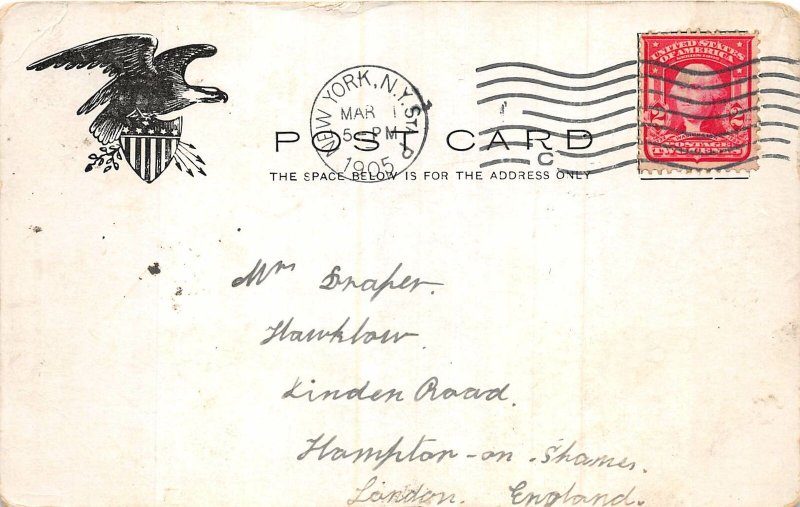 NEW YORK, N.Y. STA. P
MAR 1
5 - PM
1905
UNITED STATES
OF AMERICA
2 2
POSTAGE
TWO CENTS
POST CARD
C
THE SPACE BELOW IS FOR THE ADDRESS ONLY
Mrs Draper.
Hawklow
Linden Road.
Hampton-on-Thames.
London. England.